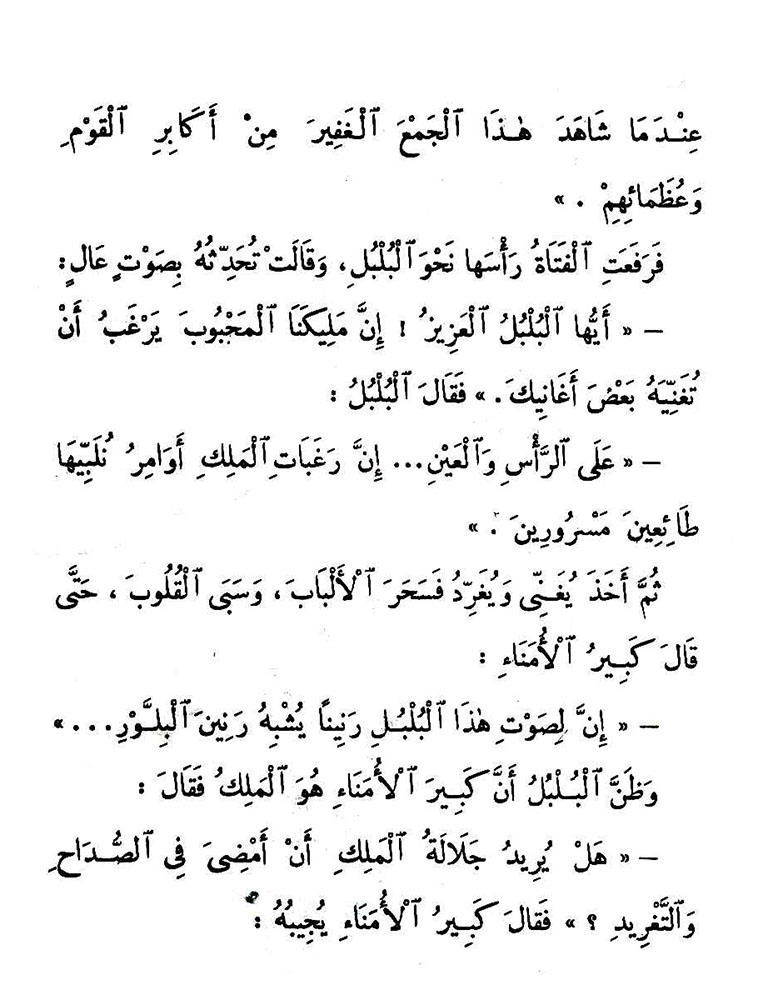 عِنْدَمَا شَاهَدَ هٰذَا ٱلْجَمْعَ ٱلْغَفِيرَ مِنْ أَكَابِرِ ٱلْقَوْمِ
وَعُظَمَائِهِمْ . »
فَرَفَعَتِ ٱلْفَتَاةُ رَأْسَها نَحْوَ ٱلْبُلْبُلِ، وَقَالَتْ تُحَدِّثُهُ بِصَوْتٍ عَالٍ:
— « أَيُّها ٱلْبُلْبُلُ ٱلْعَزِيزُ ! إِنَّ مَلِيكَنَا ٱلْمَحْبُوبَ يَرْغَبُ أَنْ
تُغَنِّيَهُ بَعْضَ أَغَانِيكَ. » فَقَالَ ٱلْبُلْبُلُ :
— « عَلَى ٱلرَّأْسِ وَٱلْعَيْنِ... إِنَّ رَغَبَاتِ ٱلْمَلِكِ أَوَامِرُ نُلَبِّيهَا
طَائِعِينَ مَسْرُورِينَ . »
ثُمَّ أَخَذَ يُغَنِّى وَيُغَرِّدُ فَسَحَرَ ٱلْأَلْبَابَ ، وَسَبَى ٱلْقُلُوبَ ، حَتَّى
قَالَ كَبِيرُ ٱلْأُمَنَاءِ :
— « إِنَّ لِصَوْتِ هٰذَا ٱلْبُلْبُلِ رَنِيناً يُشْبِهُ رَنِينَ ٱلْبِلَّوْرِ... »
وَظَنَّ ٱلْبُلْبُلُ أَنَّ كَبِيرَ ٱلْأُمَنَاءِ هُوَ ٱلْمَلِكُ فَقَالَ :
— « هَلْ يُرِيدُ جَلَالَةُ ٱلْمَلِكِ أَنْ أَمْضِىَ فِى ٱلصُّدَاحِ
وَٱلتَّغْرِيدِ ؟ » فَقالَ كَبِيرُ ٱلْأُمَنَاءِ يُجِيبُهُ :